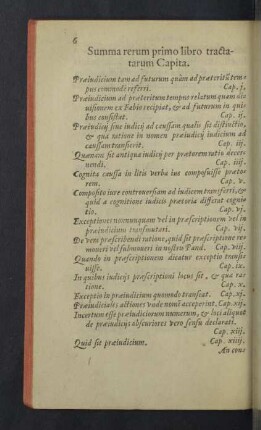 6
Summa rerum primo libro tracta-
tarum Capita.
Præiudicium tam ad futurum quàm ad præteritũ tem-
pus commodè referri. Cap. j.
Præiudicium ad præteritum tempus relatum quam
uisimem ex Fabio recipiat, & ad futurum in quibus
consistat. Cap. ij.
Præiudicij siue iudicij ad caussam qualis sit distinctio,
& qua ratione in nomen præiudicij iudicium ad
caussam transierit. Cap. iij.
Quænam sit antiqua iudicij per prætorem ratio decer-
nendi. Cap. iiij.
Cognita caussa in litis verba ius composuisse præto-
rem. Cap. v.
Composito iure controuersiam ad iudicem transferri, &
quid a cognitione iudicis prætoria differat cognitio.
Cap. vj.
Exceptionem nonnunquam vel in præscriptionem vel in
præiudicium transmutari. Cap. vij.
De veni præscribendi ratione, quid sit præscriptione re-
moueri vel submoueri in nostro Paul. Cap. viij.
Quando in præscriptionem dicatur exceptio transi-
uisse. Cap. ix.
In quibus iudicijs præscriptioni locus sit, & qua ra-
tione. Cap. x.
Exceptio in præiudicium quomodo transeat. Cap. xj.
Præiudiciales actiones vnde nomẽ acceperint. Cap. xij.
Incertum esse præiudiciorum numerum, & loci aliquot
de præiudicijs obscuriores vero sensu declarati.
Cap. xiij.
Quid sit præiudicium. Cap. xiiij.
An cone